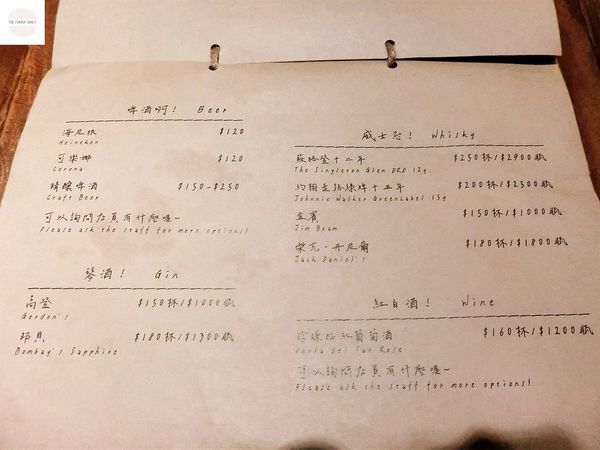 THE FUNNY DAILY
啤酒啊! Beer
海尼根 $120
Heineken
可樂娜 $120
Corona
精釀啤酒 $150-$250
Craft Beer
可以詢問店員有什麼喔~
Please ask the staff for more options!
琴酒! Gin
高登 $150杯/$1000瓶
Gordon's
邦貝 $180杯/$1300瓶
Bombay's Sapphire
威士忌! Whisky
蘇格登十二年 $250杯/$2900瓶
The Singleton Glen ORD 12y
約翰走路綠牌十五年 $200杯/$2500瓶
Johnnie Walker GreenLabel 15y
金賓 $150杯/$1000瓶
Jim Beam
傑克·丹尼爾 $180杯/$1800瓶
Jack Daniel's
紅白酒! Wine
葡萄酒 $160杯/$1200瓶
Rose
可以詢問店員有什麼喔~
Please ask the staff for more options!